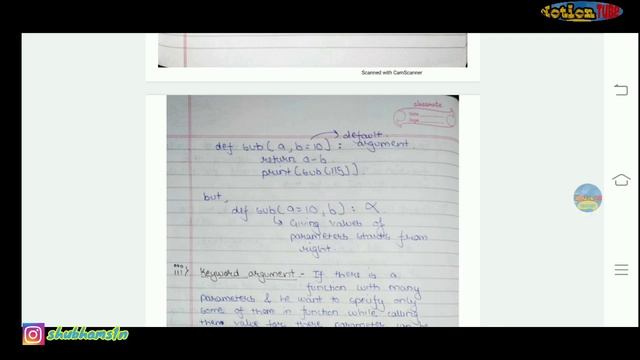 Notion TUBE
Scanned with CamScanner
classmate
Date
Page
def sub(a, b=10): → default argument.
return a-b
print(sub(115)).
but,
def sub(a=10, b): ×
↳ Giving values of
parameters starts from
right
iii) Keyword argument - If there is a
function with many
parameters & he want to specify only
some of them in function while calling
then value for these parameter can be
shubhams1n